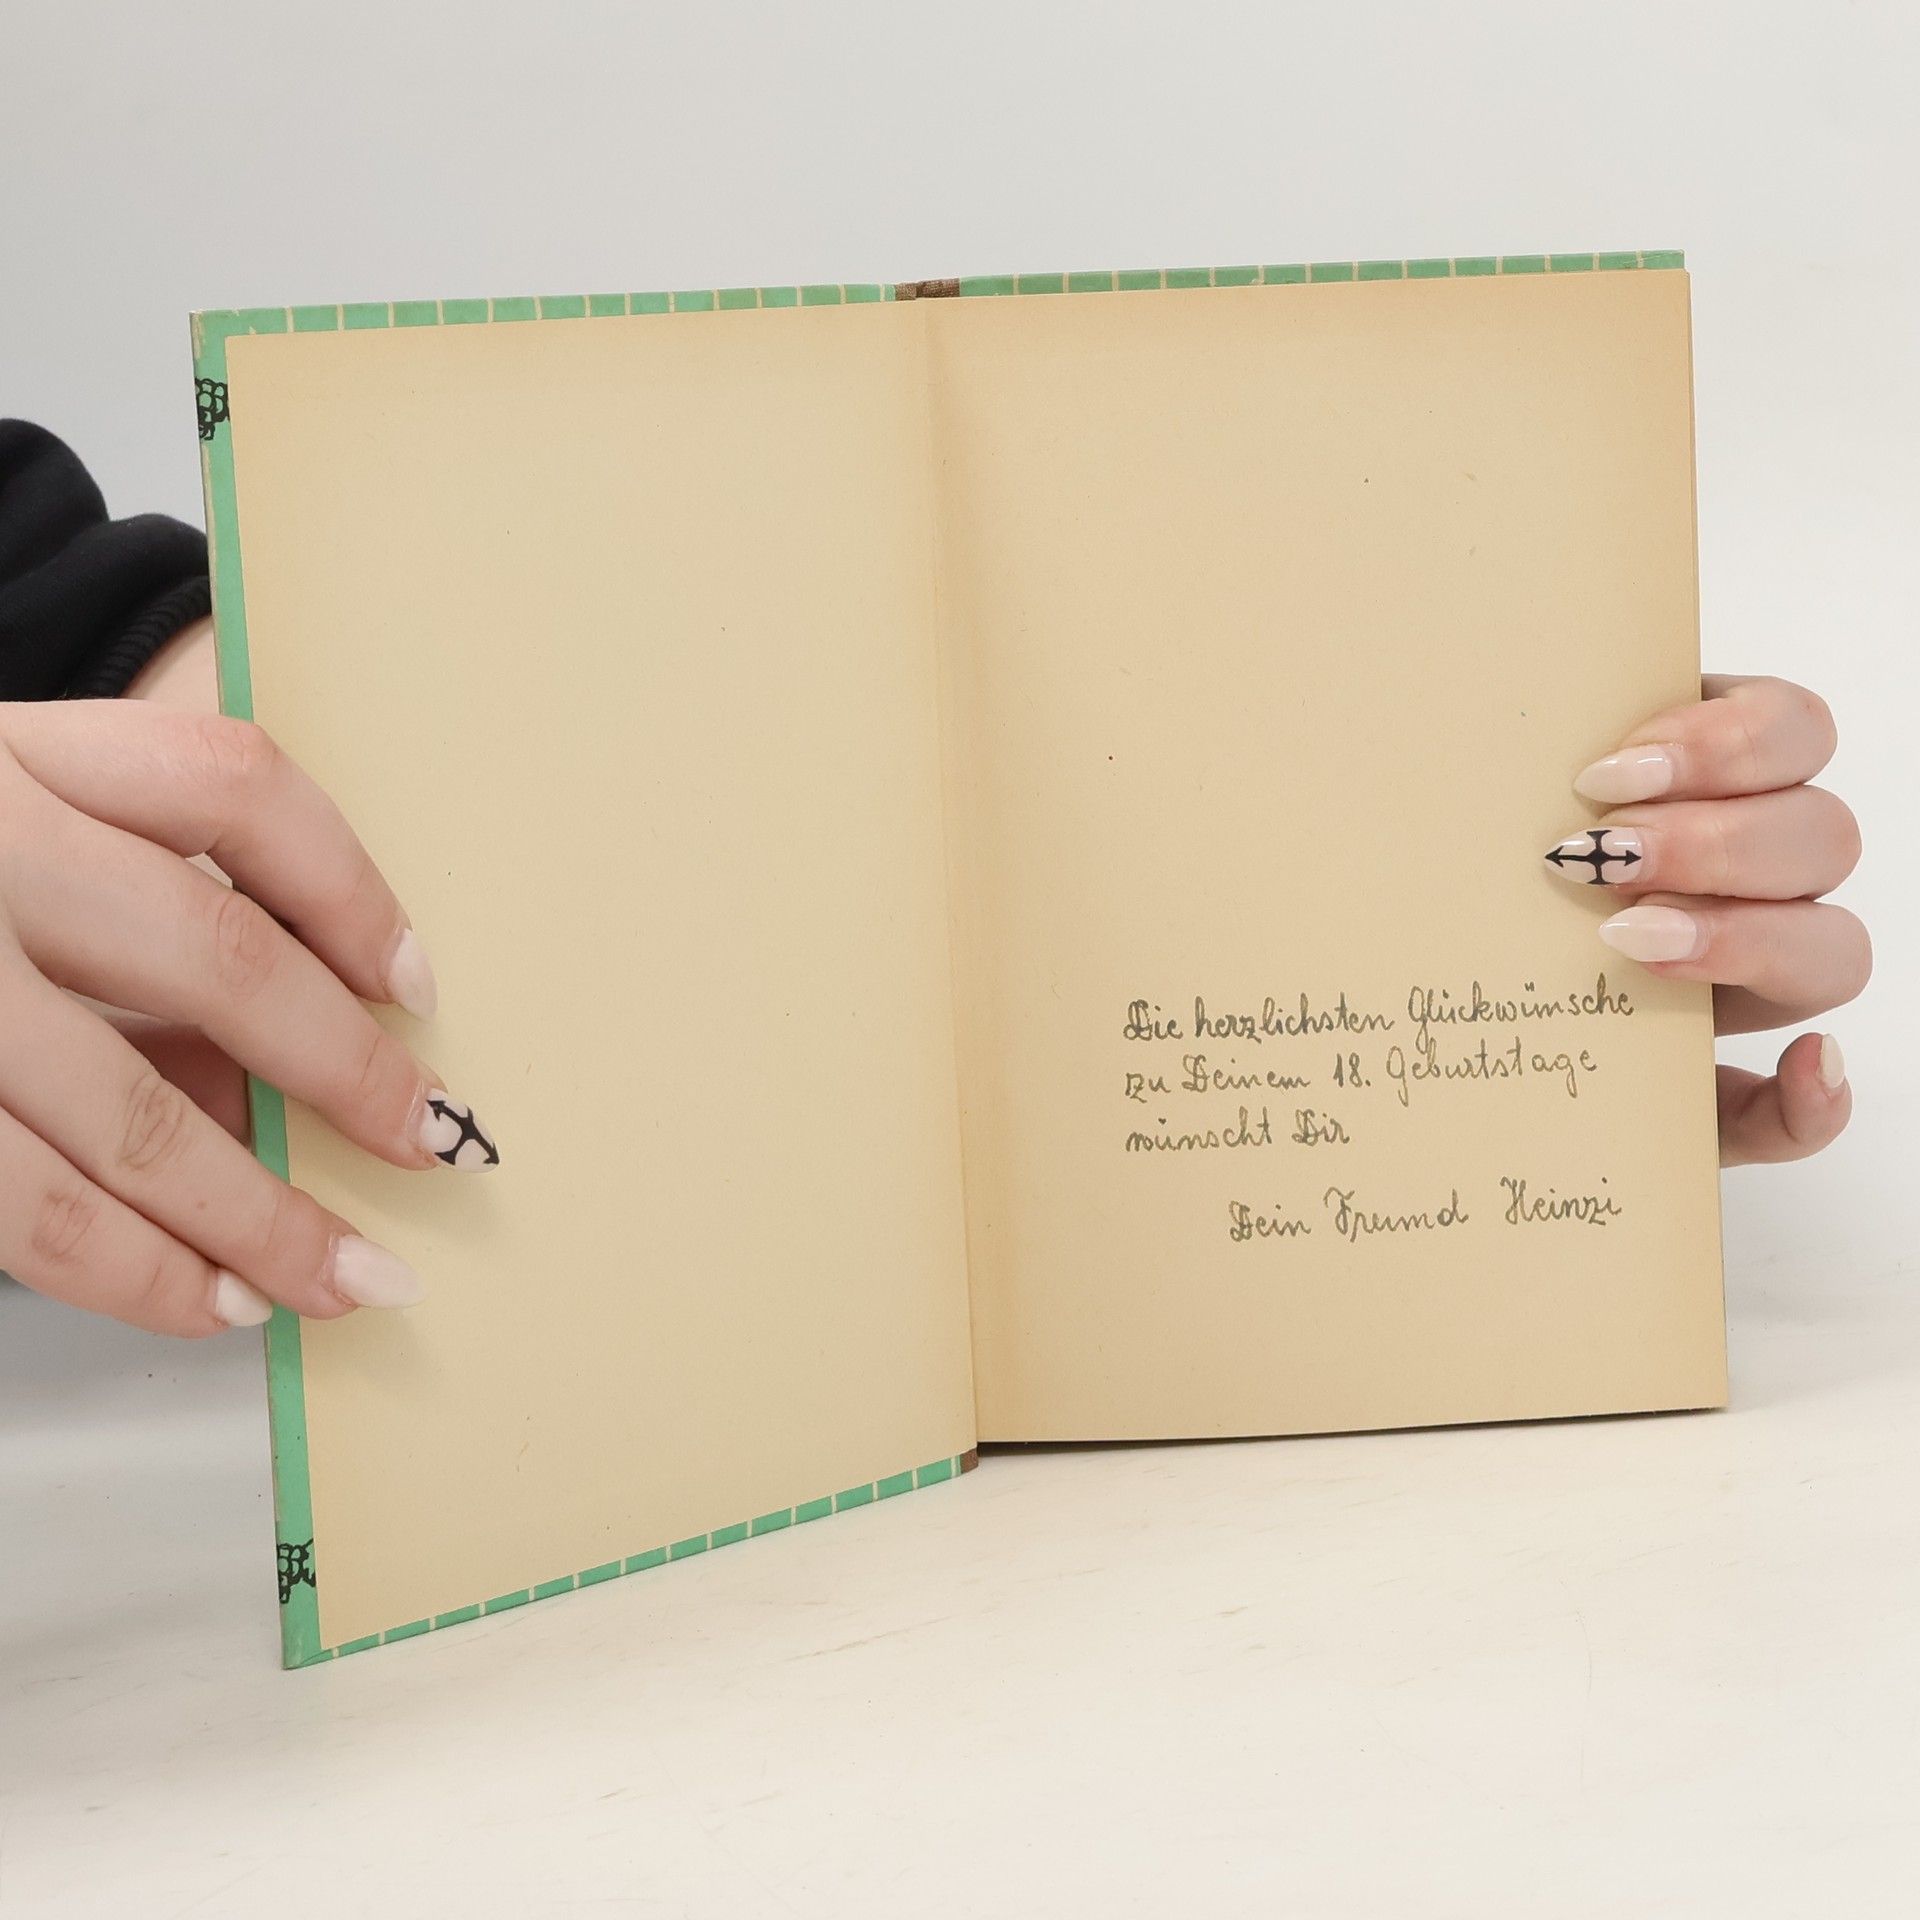 Die herzlichsten Glückwünsche
zu Deinem 18. Geburtstage
wünscht Dir
Dein Freund Heinzi